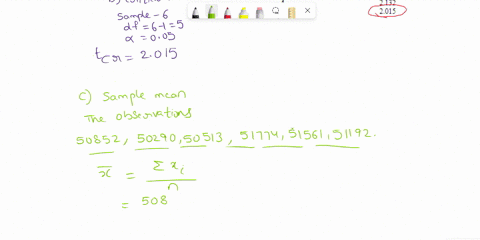 Sample - 6
df = 6-1 = 5
α = 0.05
tcr = 2.015
2.132
2.015
c) Sample mean
The observations
50852, 50290, 50513, 51774, 51561, 51192.
x̄ = Σxi / n
= 508